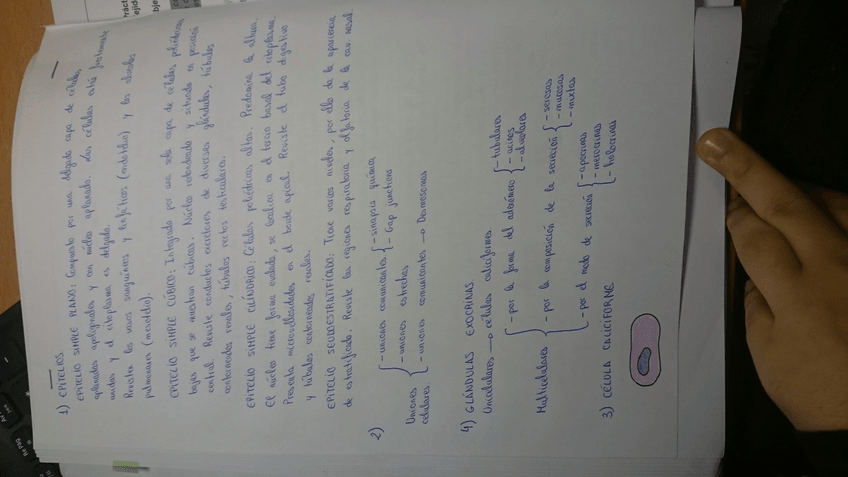 1) EPITELIOS
EPITELIO SIMPLE PLANO: Compuesto por una delgada capa de células
aplanadas apoligonales y con núcleo aplanado. Las células están fuertemente
unidas y el citoplasma es delgado.
Reviste los vasos sanguíneos y linfáticos (endotelio) y los alveolos
pulmonares (mesotelio).
EPITELIO SIMPLE CÚBICO: Integrado por una sola capa de células poliédricas
bajas que se muestran cúbicas. Núcleo redondeado y situado en posición
central. Reviste conductos excretores de diversas glándulas, túbulos
contorneados renales, túbulos rectos testiculares.
EPITELIO SIMPLE CILÍNDRICO: Células poliédricas altas. Predomina la altura.
El núcleo tiene forma ovalada, se localiza en el tercio basal del citoplasma.
Presenta microvellosidades en el borde apical. Reviste el tubo digestivo
y túbulos contorneados renales.
EPITELIO SEUDOESTRATIFICADO: Tiene varios niveles, por ello da la apariencia
de estratificado. Reviste las regiones respiratoria y olfatoria de la cav. nasal.
2)
Uniones celulares
- uniones comunicantes
- sinapsis química
- Gap junctions
- uniones estrechas
- uniones comunicantes → Desmosomas
4) GLÁNDULAS EXOCRINAS
Unicelulares → células caliciformes
Multicelulares
- por la forma del adenómero
- tubulares
- acinos
- alveolares
- por la composición de la secreción
- serosas
- mucosas
- mixtas
- por el modo de secreción
- apocrinas
- merocrinas
- holocrinas
3) CÉLULA CALICIFORME